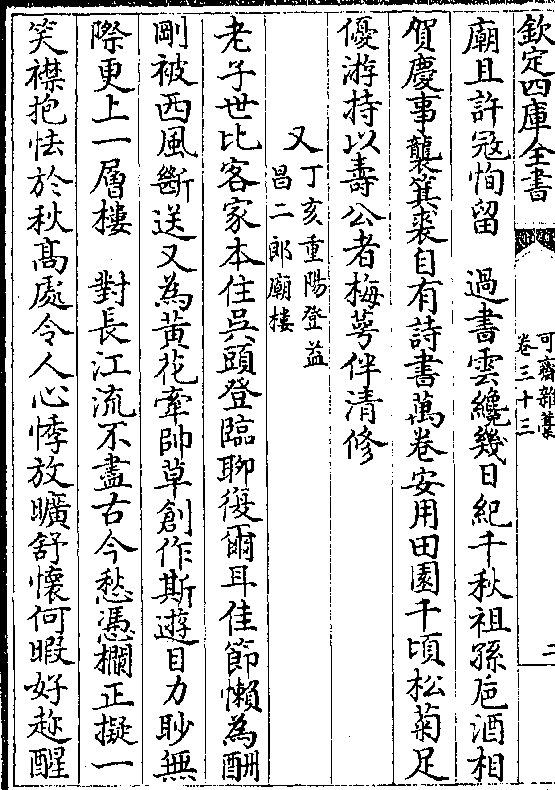 欽定四庫全書
可齋雜藁
卷三十三
二
廟且許冦恂留　過書雲纔幾日紀千秋祖孫巵酒相
賀慶事襲箕裘自有詩書萬卷安用田園千頃松菊足
優游持以壽公者梅萼伴清修
又丁亥重陽登益
昌二郎廟樓
老子世比客家本住吳頭登臨聊復爾耳佳節懶為酬
剛被西風斷送又為黃花牽帥草創作斯遊目力眇無
際更上一層樓　對長江流不盡古今愁憑欄正擬一
笑襟抱怯於秋髙處令人心悸放曠舒懷何暇好趂醒